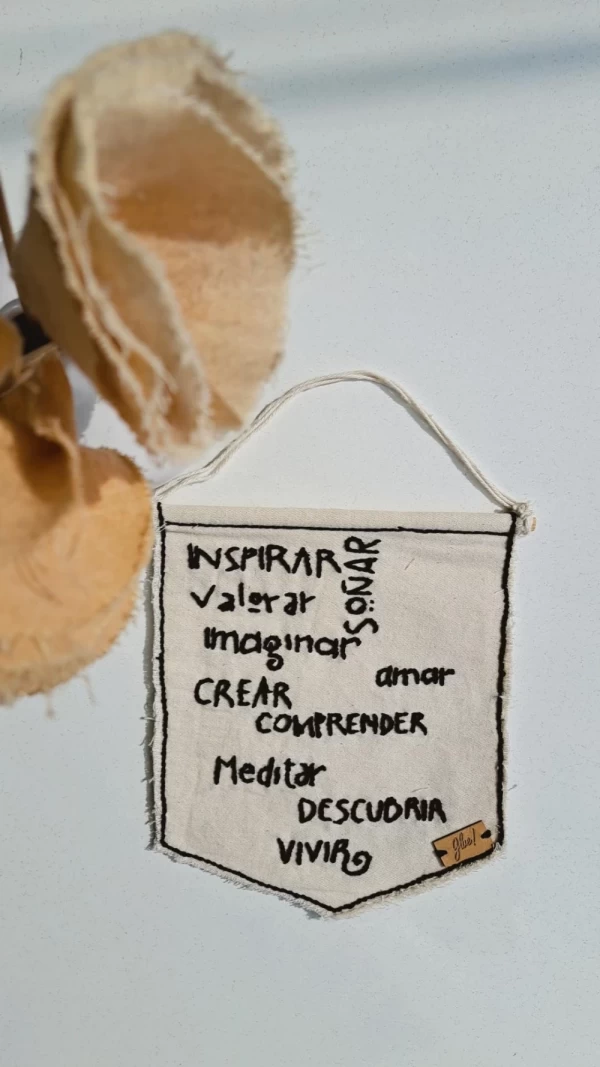 INSPIRAR
SOÑAR
Valorar
Imaginar
amar
CREAR
COMPRENDER
Meditar
DESCUBRIR
VIVIR